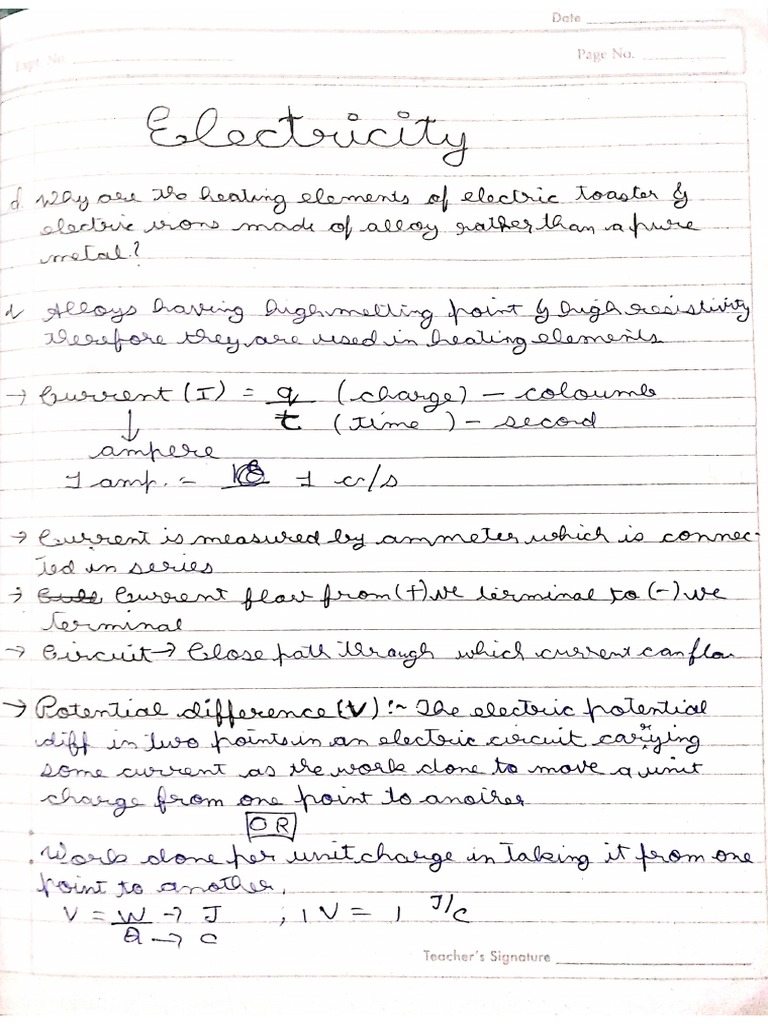 Date
Expt. No.
Page No.
Electricity
Why are the heating elements of electric toaster &
electric irons made of alloy rather than a pure
metal?
Alloys having high melting point & high resistivity
therefore they are used in heating elements
→ Current (I) = q (charge) - coloumb
t (time) - second
↓
ampere
1 amp. = 1 c/s
→ Current is measured by ammeter which is connec-
ted in series
→ Current flow from (+)ve terminal to (-)ve
terminal
→ Circuit → Close path through which current can flow
→ Potential difference (V) :~ The electric potential
diff in two points in an electric circuit carrying
some current as the work done to move a unit
charge from one point to another
OR
. Work done per unit charge in taking it from one
point to another.
V = W → J ; 1 V = 1 J/C
Q → C
Teacher's Signature